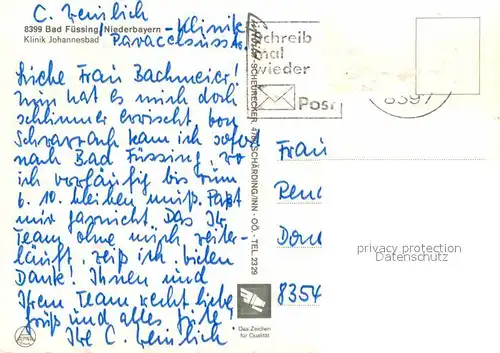 C. Weinlich
8399 Bad Füssing/Niederbayern - Klinik
Klinik Johannesbad Paracelsusstr.
Liebe Frau Bachmeier!
Nun hat es mich doch
schlimmer erwischt, von
kam ich sofort
nach Bad Füssing, wo
ich vorläufig bis zum
6. 10. bleiben muß. Paßt
mir garnicht. Das Ihr
Team ohne mich weiter-
läuft, weiß ich. Vielen
Dank! Ihnen und
Ihrem Team recht liebe
Grüße und alles Gute
Ihre C. Weinlich
SCHEURECKER 4780 SCHÄRDING/INN - OÖ. - TEL. 2329
Schreib
mal
wieder
Post
8397
Frau
Don
8354
privacy protection
Datenschutz
* Das Zeichen
für Qualität